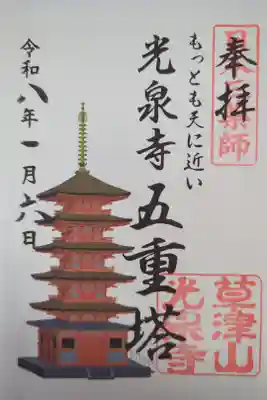 奉拝
もっとも天に近い
光泉寺五重塔
令和八年一月六日
草津山
光泉寺